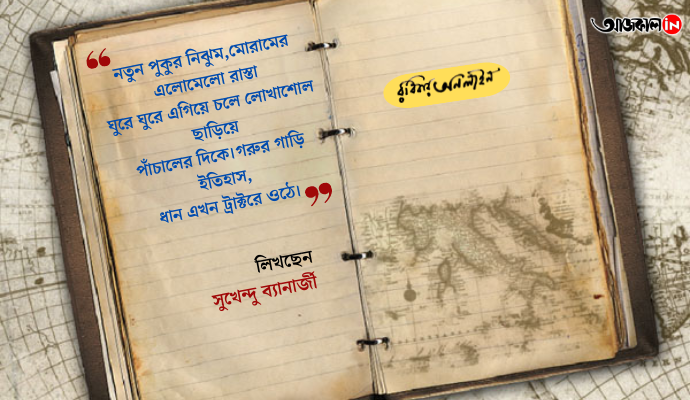 আজকাল in
রবিবার অনলাইন
“নতুন পুকুর নিঝুম,মোরামের
এলোমেলো রাস্তা
ঘুরে ঘুরে এগিয়ে চলে লোখাশোল
ছাড়িয়ে
পাঁচালের দিকে।গরুর গাড়ি
ইতিহাস,
ধান এখন ট্রাক্টরে ওঠে।”
লিখছেন
সুখেন্দু ব্যানার্জী